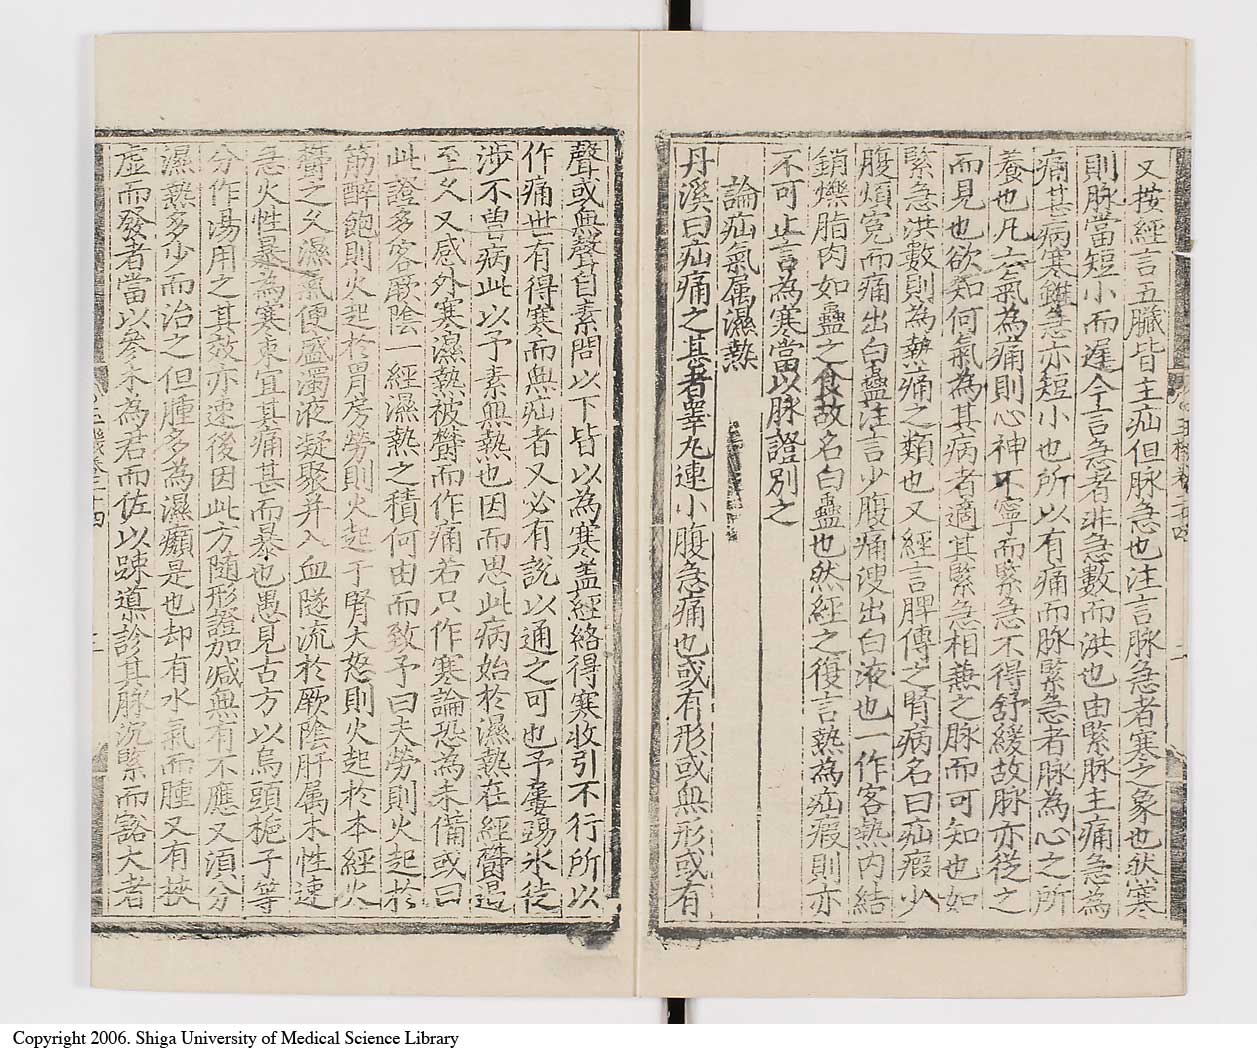 又按經言五臟皆主疝但脉急也注言脉急者寒之象也然寒
則脉當短小而遲今言急者非急數而洪也由緊脉主痛急為
痛甚病寒雖急亦短小也所以有痛而脉緊急者脉為心之所
養也凡六氣為痛則心神不寧而緊急不得舒緩故脉亦從之
而見也欲知何氣為其病者適其緊急相兼之脉而可知也如
緊急洪數則為熱痛之類也又經言脾傳之腎病名曰疝瘕少
腹煩寃而痛出白蠱注言少腹痛溲出白液也一作客熱内結
銷爍脂肉如蠱之食故名白蠱也然經之復言熱為疝瘕則亦
不可止言為寒當以脉證別之
論疝氣属濕熱
丹溪曰疝痛之甚者睾丸連小腹急痛也或有形或無形或有
聲或無聲自素問以下皆以為寒盖經絡得寒收引不行所以
作痛世有得寒而無疝者又必有說以通之可也予屢踢水徒
涉不曽病此以予素無熱也因而思此病始於濕熱在經欝遏
至久又感外寒濕熱被欝而作痛若只作寒論恐為未備或曰
此證多客厥陰一經濕熱之積何由而致予曰夫勞則火起於
筋醉飽則火起於胃房勞則火起于腎大怒則火起於本經火
欝之久濕氣便盛濁液凝聚并入血隧流於厥陰肝属木性速
急火性暴為寒束宜其痛甚而暴也愚見古方以烏頭梔子等
分作湯用之其效亦速後因此方随形證加减無有不應又湏分
濕熱多少而治之但腫多為濕癩是也却有水氣而腫又有挾
虚而發者當以參朮為君而佐以踈導診其脉沉緊而豁大者
Copyright 2006. Shiga University of Medical Science Library